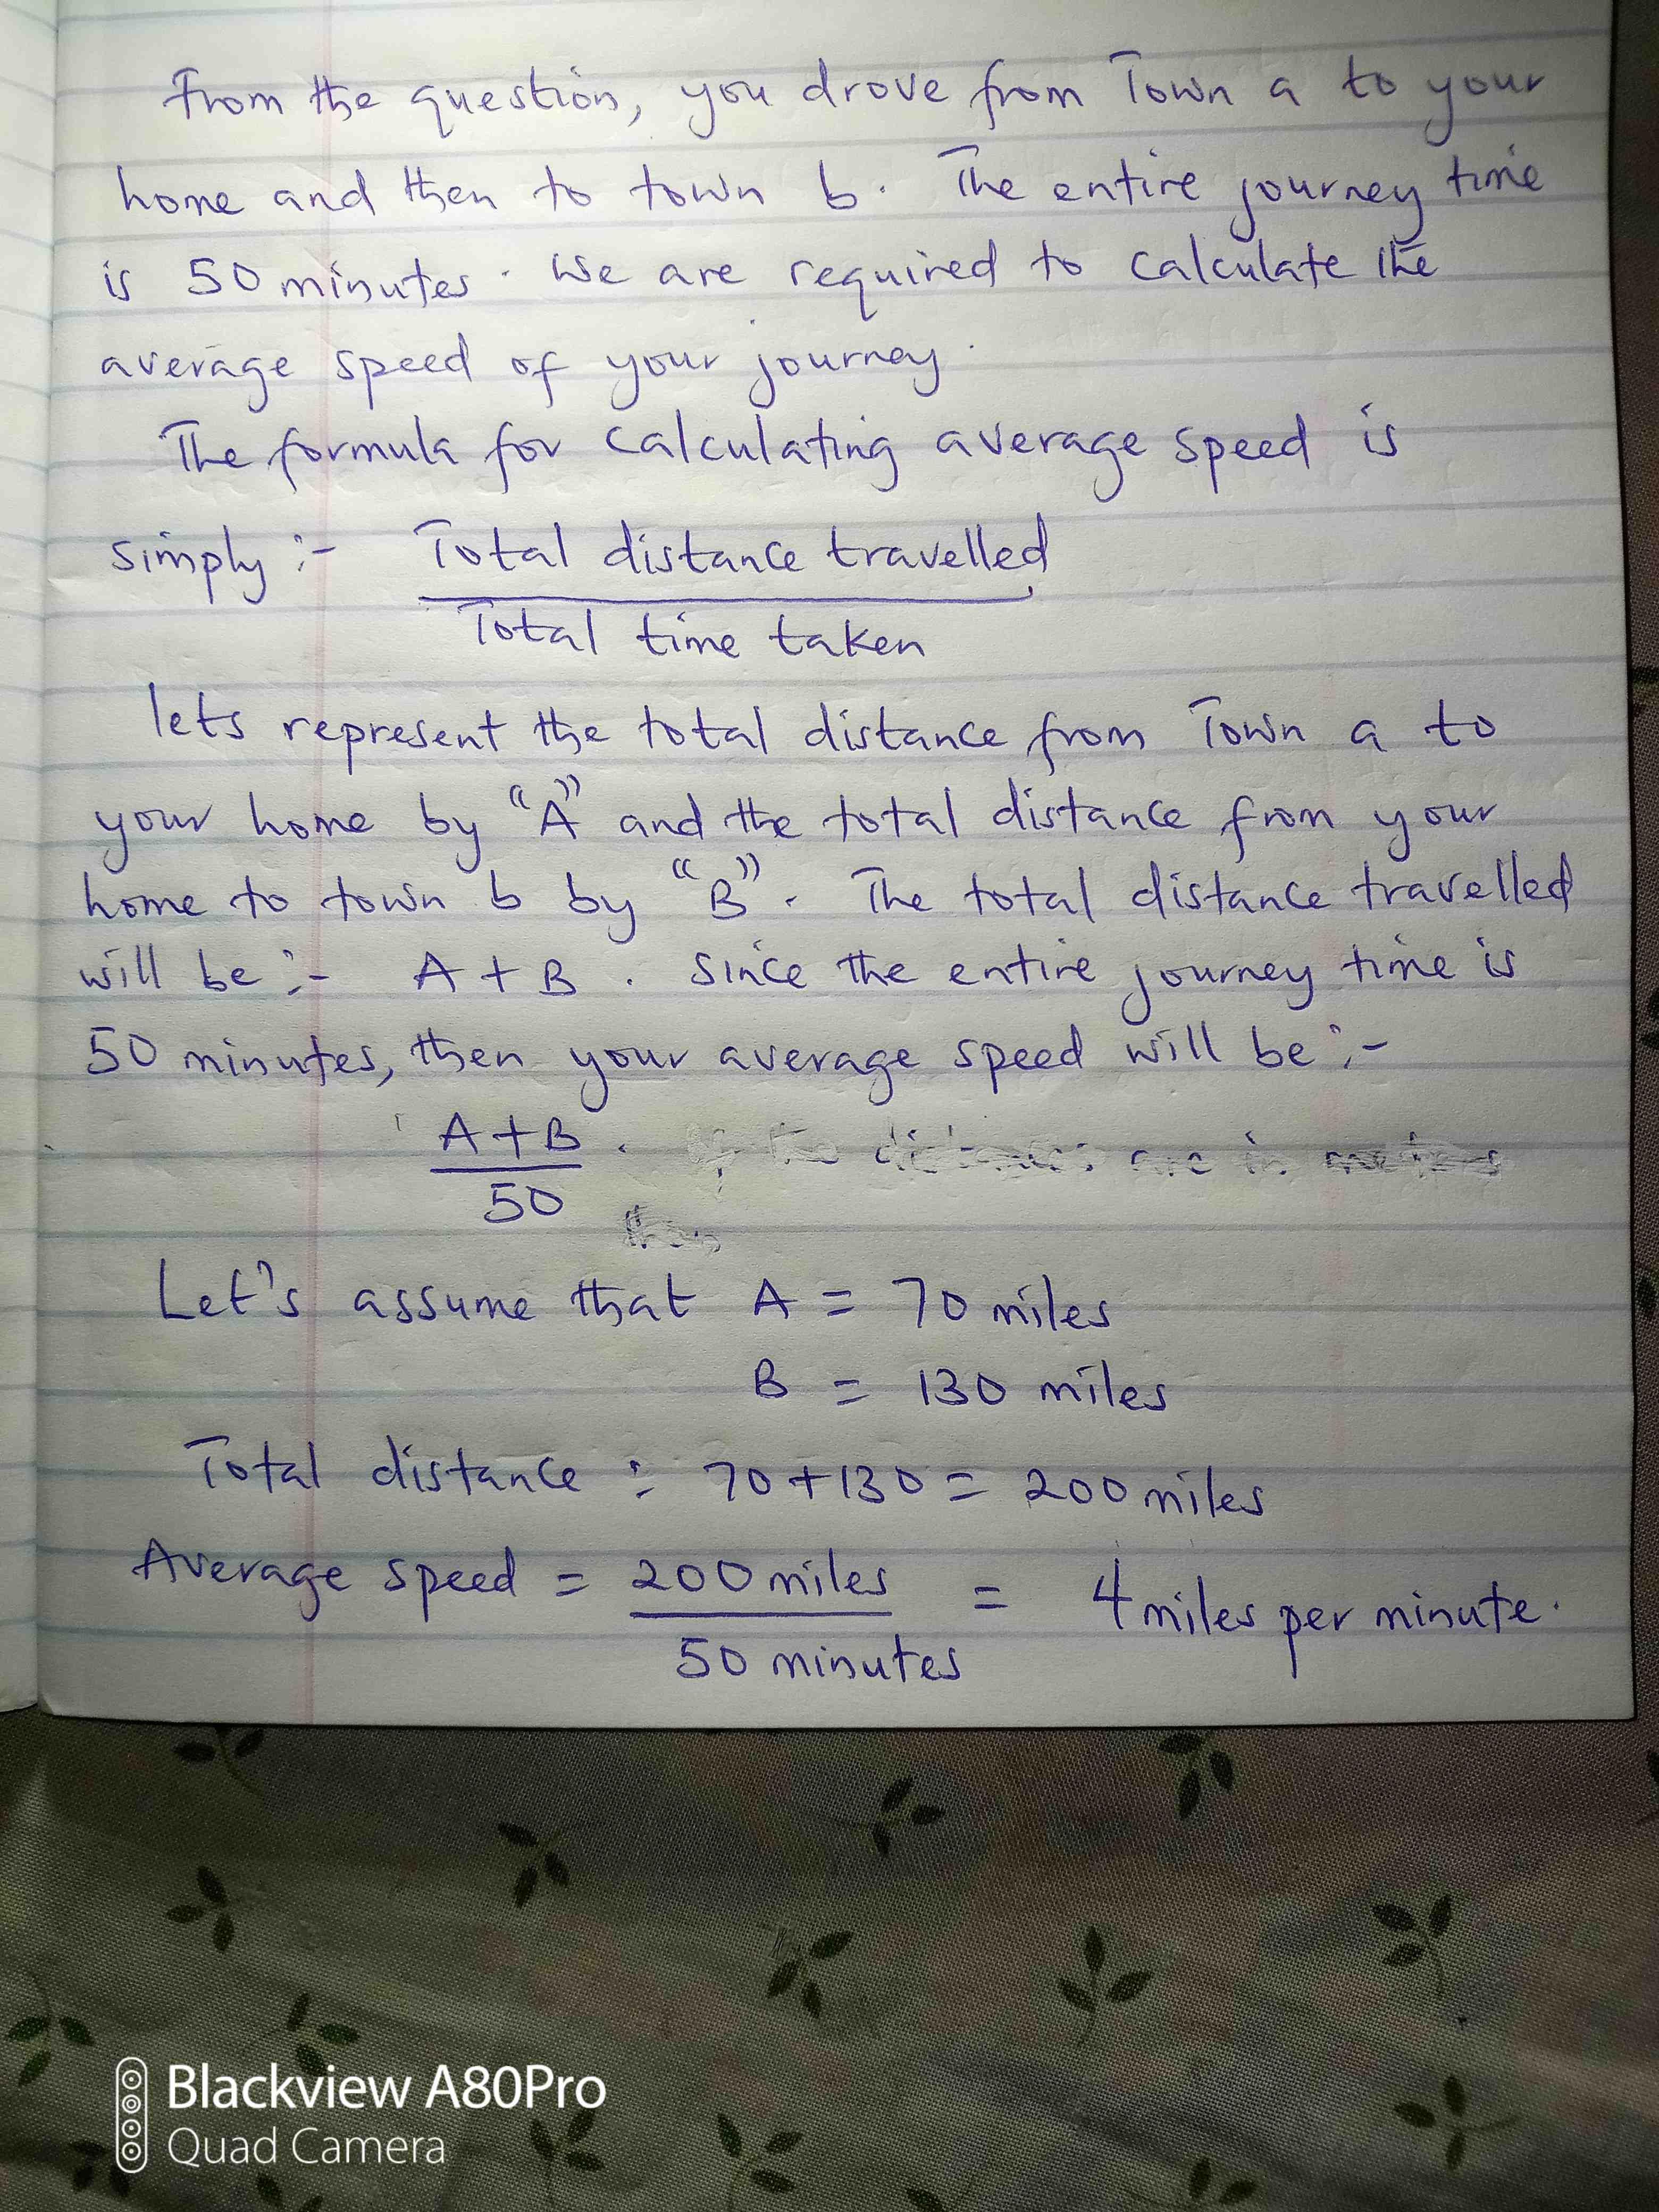 From the question, you drove from Town a to your
home and then to town b. The entire journey time
is 50 minutes. We are required to calculate the
average speed of your journey.
The formula for calculating average speed is
simply :- Total distance travelled
Total time taken
lets represent the total distance from Town a to
your home by "A" and the total distance from your
home to town b by "B". The total distance travelled
will be :- A + B. Since the entire journey time is
50 minutes, then your average speed will be :-
A + B
50
Let's assume that A = 70 miles
B = 130 miles
Total distance : 70 + 130 = 200 miles
Average speed = 200 miles = 4 miles per minute.
50 minutes
Blackview A80Pro
Quad Camera